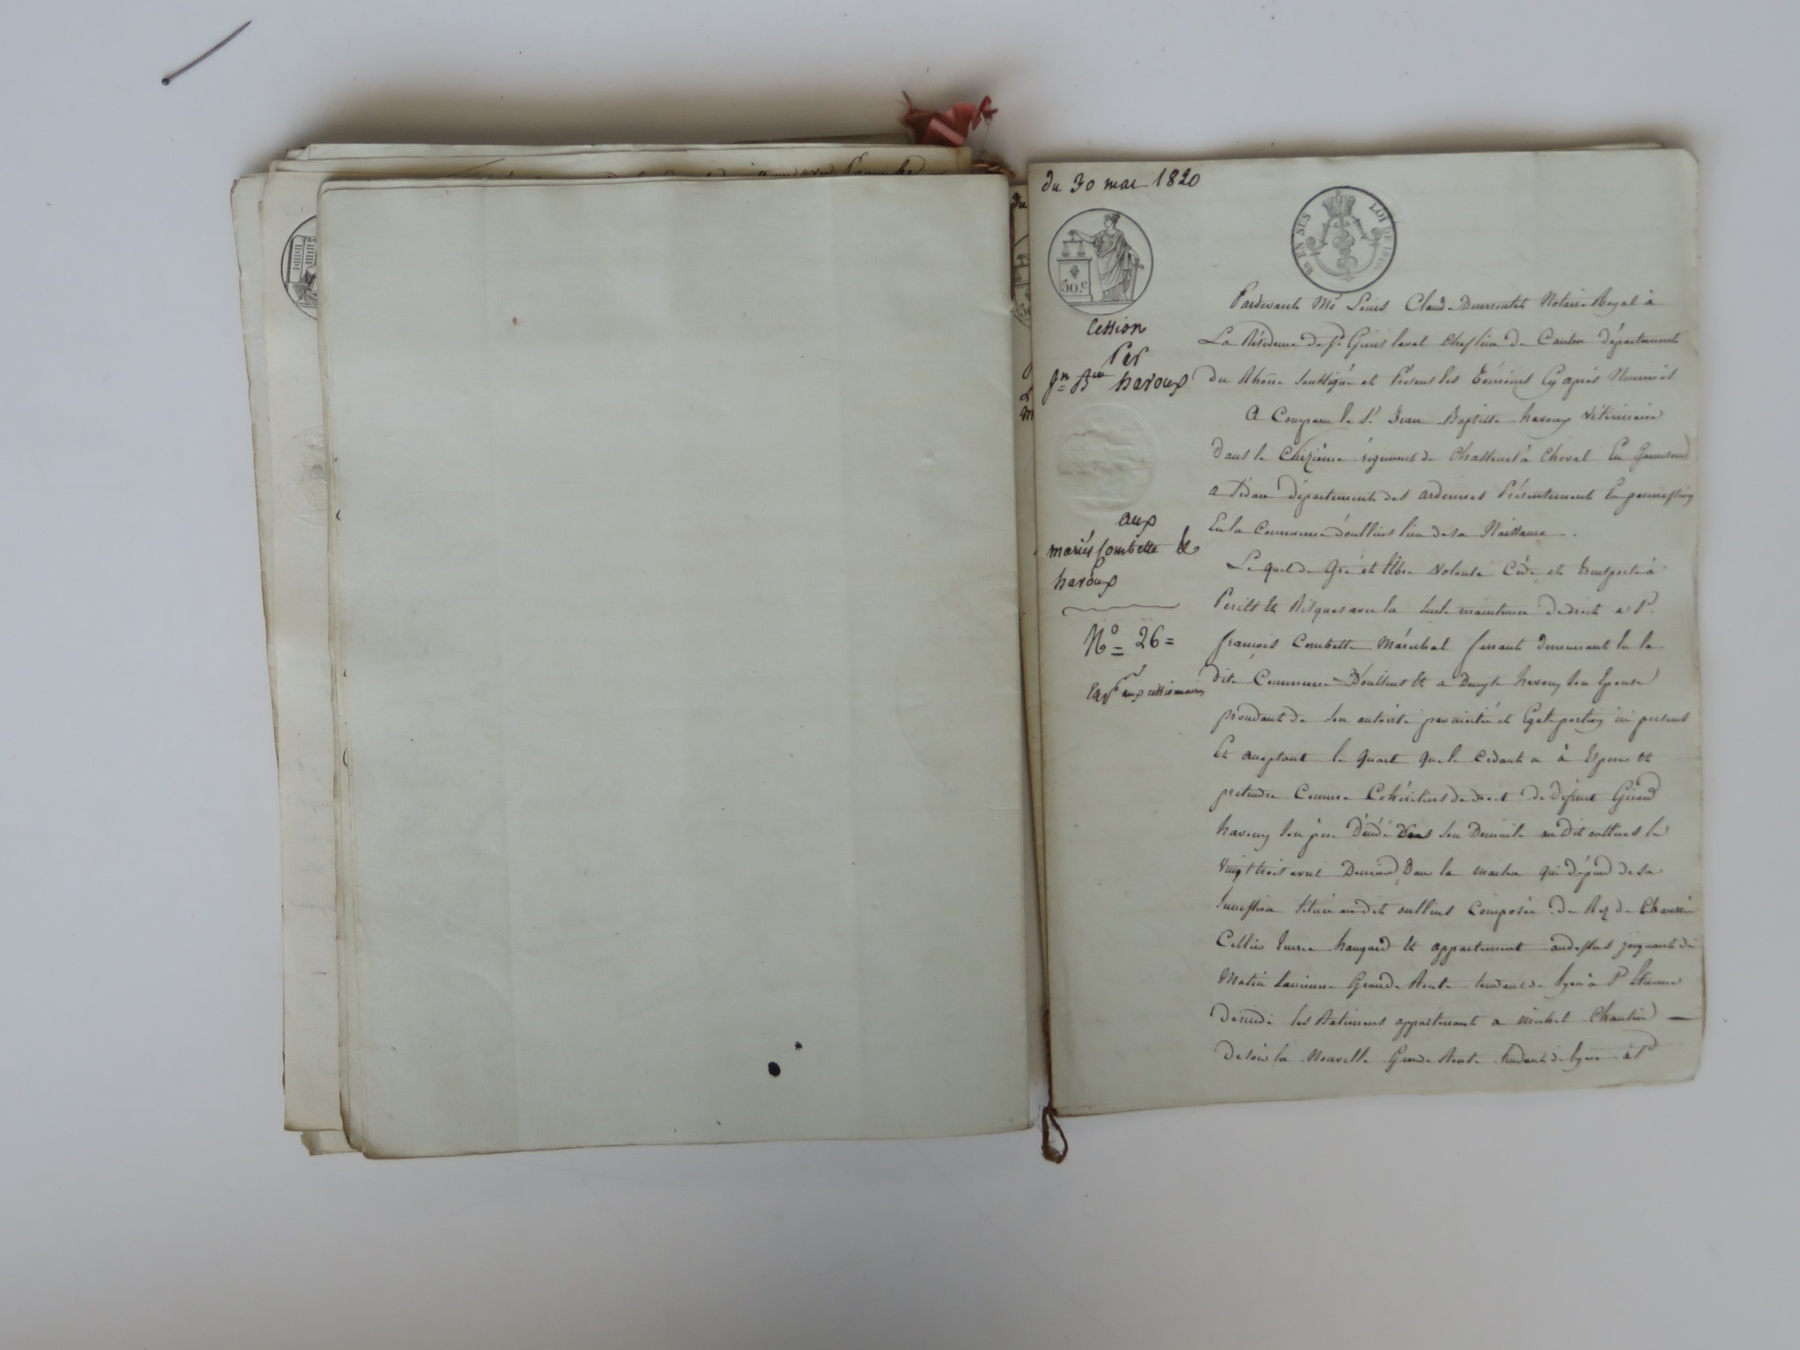 du 30 mai 1820
50.c
EN SUS
LOI DE 1816
Cession
Par
Jn Bte haroux
aux
mariés Combette &
haroux
No = 26 =
Exp aux cessionnaires
Pardevant Me Louis Claude Notaire Royal à
La Résidence de St Genis laval Chef lieu de Canton département
du Rhône Soussigné et Présents les Témoins Cy après Nommés
A Comparu le Sr Jean Baptiste haroux vétérinaire
Dans le régiment de Chasseurs à Cheval En
a Sédan département des ardennes Présentement En permission
En la Commune d'oullins lieu de sa Naissance
Le quel de Gré et libre volonté Cède et transporte à
Périls & Risques avec la Seule maintenue de droit a Sr
françois Combette Maréchal ferrant demeurant En la
dite Commune D'oullins & a haroux Son Epouse
procédant de Son autorité par moitié et Egale portion ici présens
Et acceptant le Quart que le Cédant a à Espérer &
prétendre Comme Cohéritier de droit de Défunt Gérard
haroux Son père Décédé Dans Son Domicile au Dit oullins le
vingt trois avril Dernier Dans la maison qui dépend de sa
Succession Située au dit oullins Composée De Rez de Chaussée
Cellier Ecurie hangard & appartement au dessus joignant de
Matin L'ancienne Grande Route tendant de lyon à St Etienne
de midi les Batimens appartenant a michel Chantier
de soir la Nouvelle Grande Route tendant de lyon à St